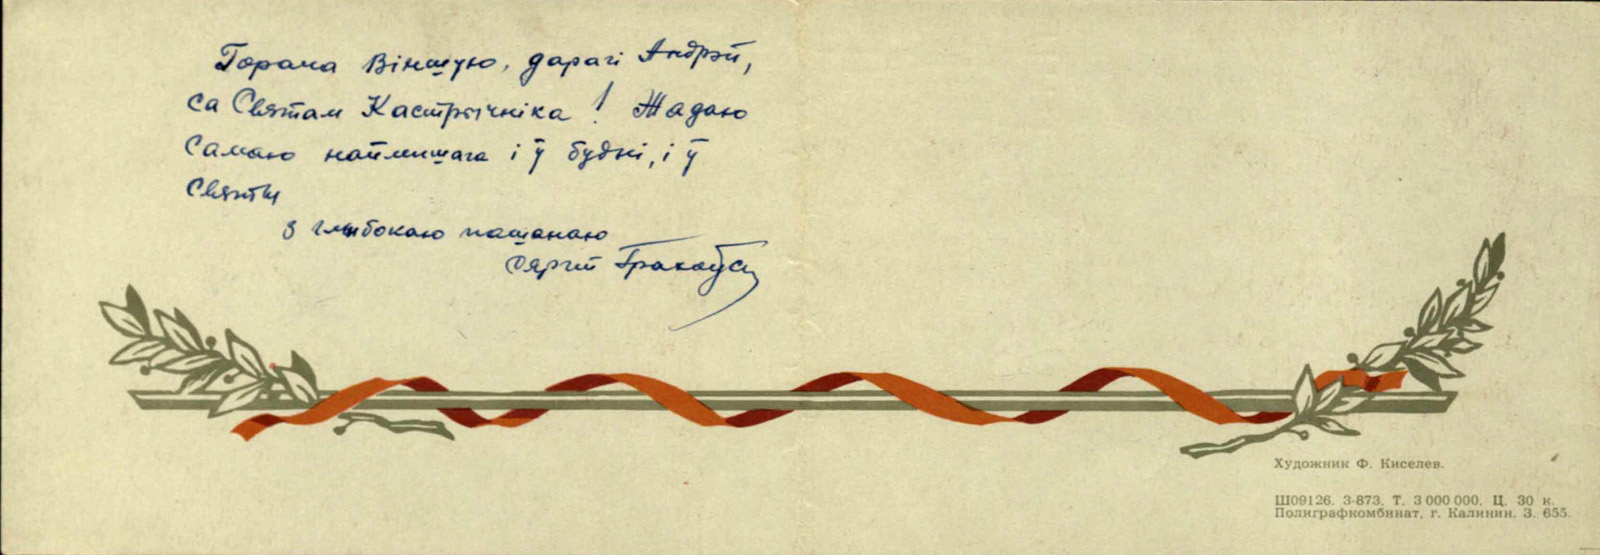 Горача віншую, дарагі Андрэй,
са Святам Кастрычніка! Жадаю
самаю найлепшага і ў будні, і ў
святы
З глыбокаю пашанаю
Сяргей Гракоўскі
Художник Ф. Киселев.
Ш09126. 3-873. Т. 3 000 000. Ц. 30 к.
Полиграфкомбинат, г. Калинин. З. 655.